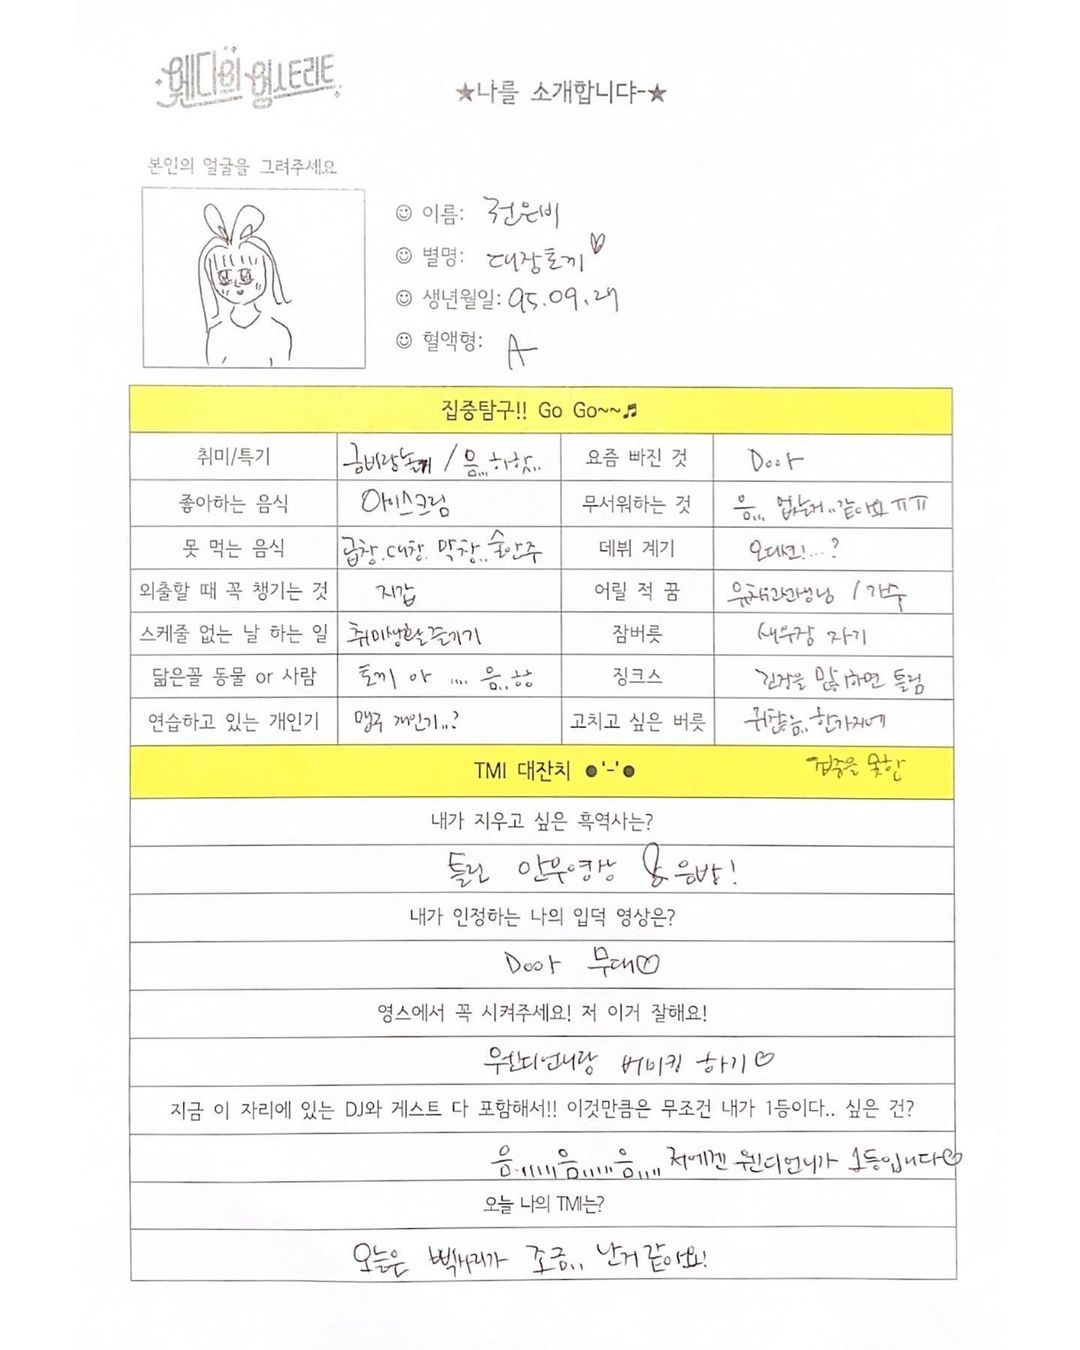 웬디의 영스트리트
★나를 소개합니댜-★
본인의 얼굴을 그려주세요
이름: 권은비
별명: 대장토끼♡
생년월일: 95.09.27
혈액형: A
집중탐구!! Go Go~~♬
취미/특기 금비랑놀기 / 음,,, 하핫.. 요즘 빠진 것 Door
좋아하는 음식 아이스크림 무서워하는 것 음,,, 없는거..같아요ㅠㅠ
못 먹는 음식 곱창.대창. 막창.. 술안주 데뷔 계기 오디션!...?
외출할 때 꼭 챙기는 것 지갑 어릴 적 꿈 유치원선생님 / 가수
스케줄 없는 날 하는 일 취미생활 즐기기 잠버릇 새우잠 자기
닮은꼴 동물 or 사람 토끼 아 .... 음,, 핳 징크스 긴장을 많이하면 틀림
연습하고 있는 개인기 맹구 개인기..? 고치고 싶은 버릇 귀찮음.. 한가지에
집중을 못함
TMI 대잔치 ●'-'●
내가 지우고 싶은 흑역사는?
틀린 안무영상 음방!
내가 인정하는 나의 입덕 영상은?
Door 무대♡
영스에서 꼭 시켜주세요! 저 이거 잘해요!
웬디언니랑 베이킹 하기♡
지금 이 자리에 있는 DJ와 게스트 다 포함해서!! 이것만큼은 무조건 내가 1등이다.. 싶은 건?
음.,,,,,음,,,,,음,,,, 저에겐 웬디언니가 1등입니다♡
오늘 나의 TMI는?
오늘은 삑사리가 조금,, 난거같아요!